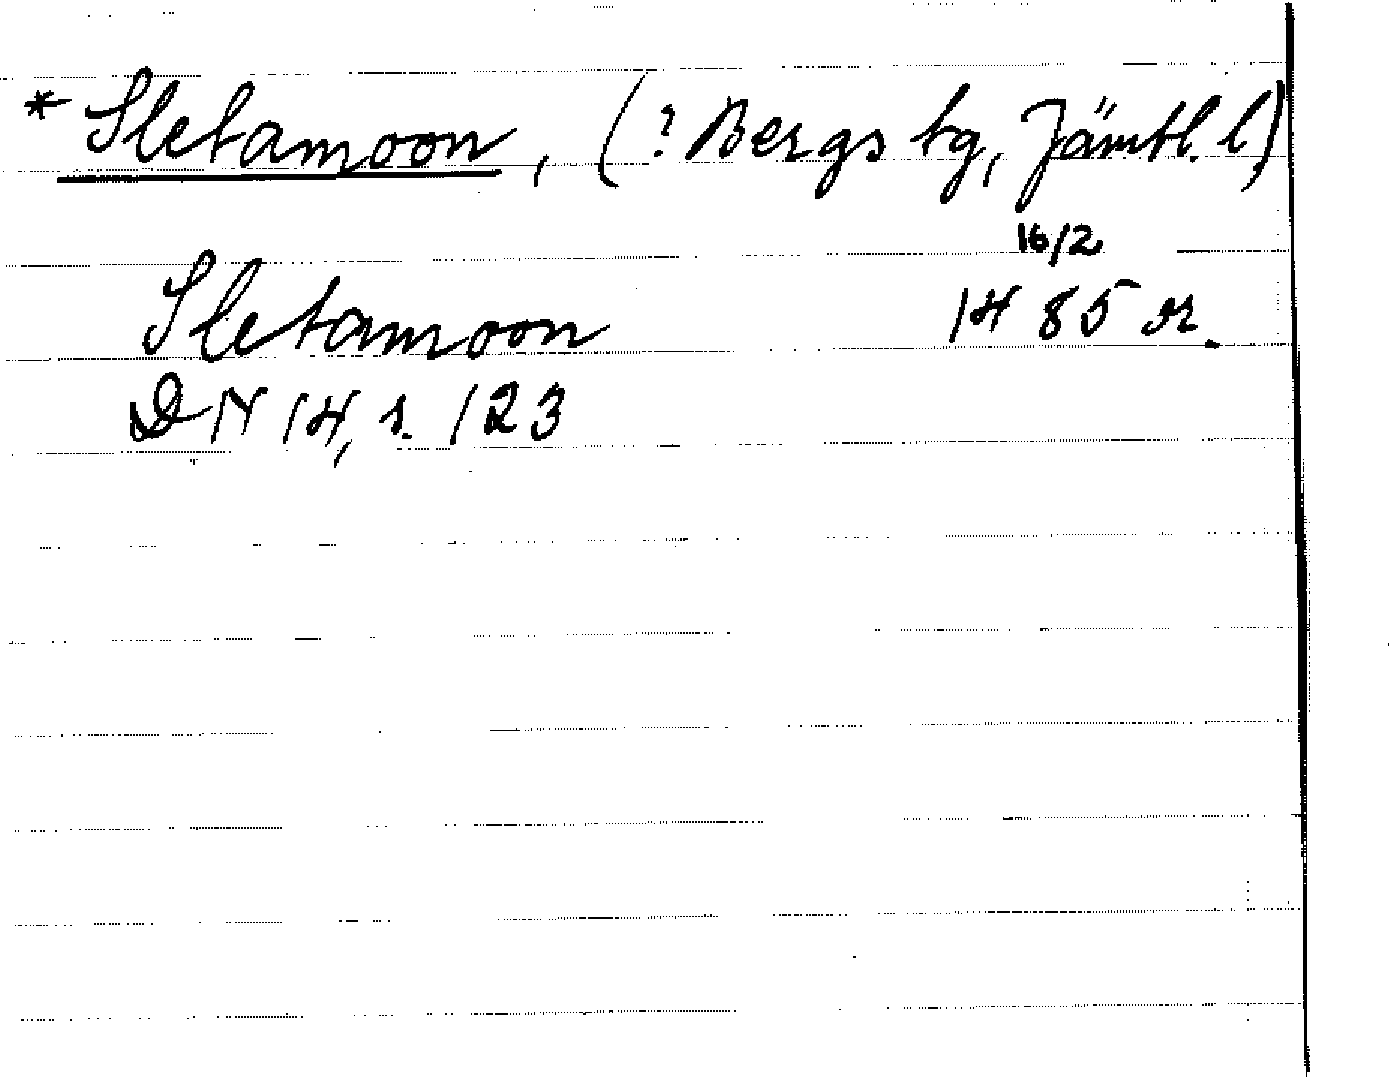 * Sletamoon, (? Bergs tg, Jämtl. l)
16/2
Sletamoon 1485 or.
DN 14, s. 123